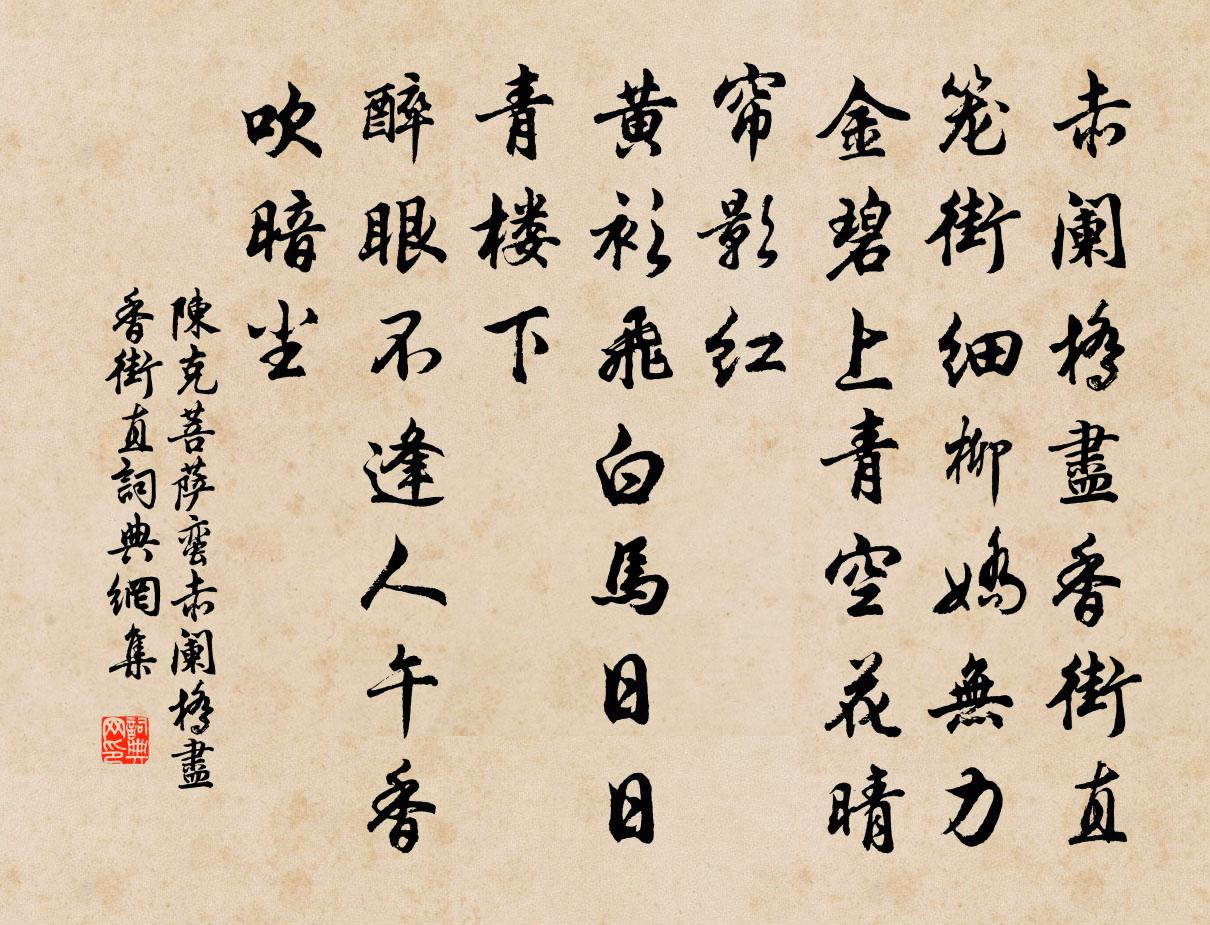 赤阑橋盡香街直
笼街细柳嬌無力
金碧上青空花晴
帘影红
黄衫飛白馬日日
青楼下
醉眼不逢人午香
吹暗尘
陳克菩萨蛮赤阑橋盡
香街直詞典網集
詞典网印